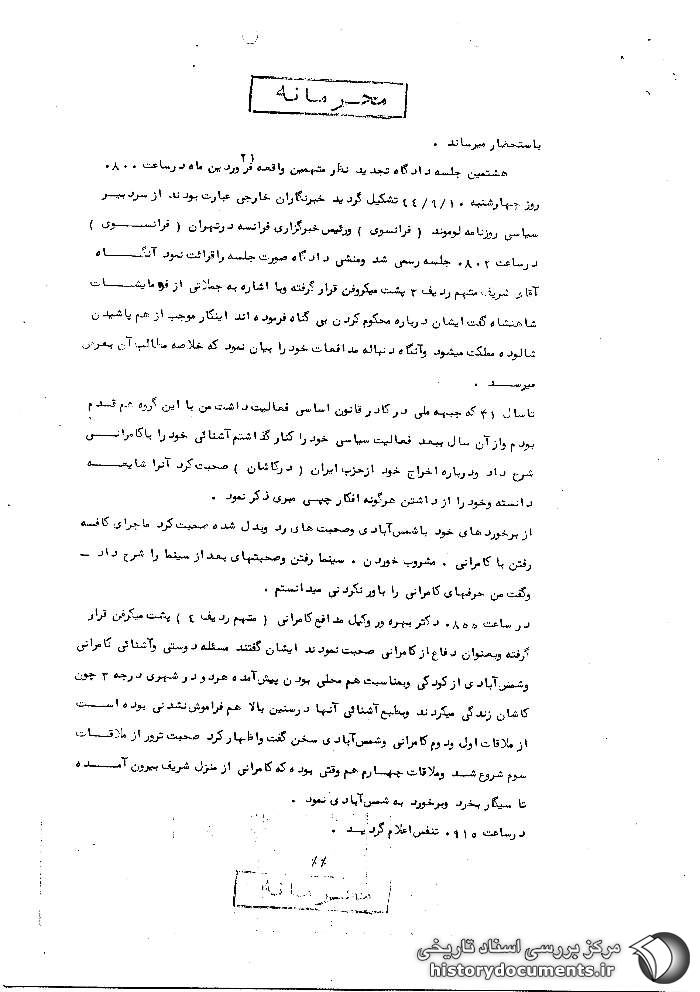 محرمانه
باستحضار میرساند .
هشتمین جلسه دادگاه تجدید نظر متهمین واقعه ۲۱ فروردین ماه درساعت ۰۸۰۰
روز چهارشنبه ۴۴/۹/۱۰ تشکیل گردید خبرنگاران خارجی عبارت بودند از سردبیر
سیاسی روزنامه لوموند ( فرانسوی ) ورئیس خبرگزاری فرانسه درتهران ( فرانسوی )
درساعت ۰۸۰۲ جلسه رسمی شد ومنشی دادگاه صورت جلسه راقرائت نمود آنگاه
آقای شریف متهم ردیف ۳ پشت میکروفن قرار گرفته وبا اشاره به جملاتی از فرمایشات
شاهنشاه گفت ایشان درباره محکوم کردن بی گناه فرموده اند اینکار موجب از هم پاشیدن
شالوده مملکت میشود وآنگاه دنباله مدافعات خود را بیان نمود که خلاصه مطالب آن بعرض
میرسد .
تاسال ۴۱ که جبهه ملی درکادر قانون اساسی فعالیت داشت من با این گروه هم قدم
بودم واز آن سال ببعد فعالیت سیاسی خود را کنار گذاشتم آشنائی خود را باکامرانی
شرح داد ودرباره اخراج خود ازحزب ایران ( درکاشان ) صحبت کرد آنرا شایعه
دانسته وخود را از داشتن هرگونه افکار چپی مبری ذکر نمود .
از برخوردهای خود باشمس‌آبادی وصحبت های رد وبدل شده صحبت کرد ماجرای کافه
رفتن با کامرانی . مشروب خوردن . سینما رفتن وصحبتهای بعد از سینما را شرح داد ـ
وگفت من حرفهای کامرانی را باور نکردنی میدانستم .
در ساعت ۰۸۵۵ دکتر بهره ور وکیل مدافع کامرانی ( متهم ردیف ٤ ) پشت میکرفن قرار
گرفته وبعنوان دفاع از کامرانی صحبت نمودند ایشان گفتند مسئله دوستی وآشنائی کامرانی
وشمس‌آبادی از کودکی وبمناسبت هم محلی بودن پیش‌آمده هردو در شهری درجه ۳ چون
کاشان زندگی میکردند وبطبع آشنائی آنها درسنین بالا هم فراموش نشدنی بوده است
از ملاقات اول ودوم کامرانی وشمس‌آبادی سخن گفت واظهار کرد صحبت ترور از ملاقات
سوم شروع شد وملاقات چهارم هم وقتی بوده که کامرانی از منزل شریف بیرون آمده
تا سیگار بخرد وبرخورد به شمس‌آبادی نمود .
درساعت ۰۹۱۵ تنفس اعلام گردید .
محرمانه
مرکز بررسی اسناد تاریخی
historydocuments.ir